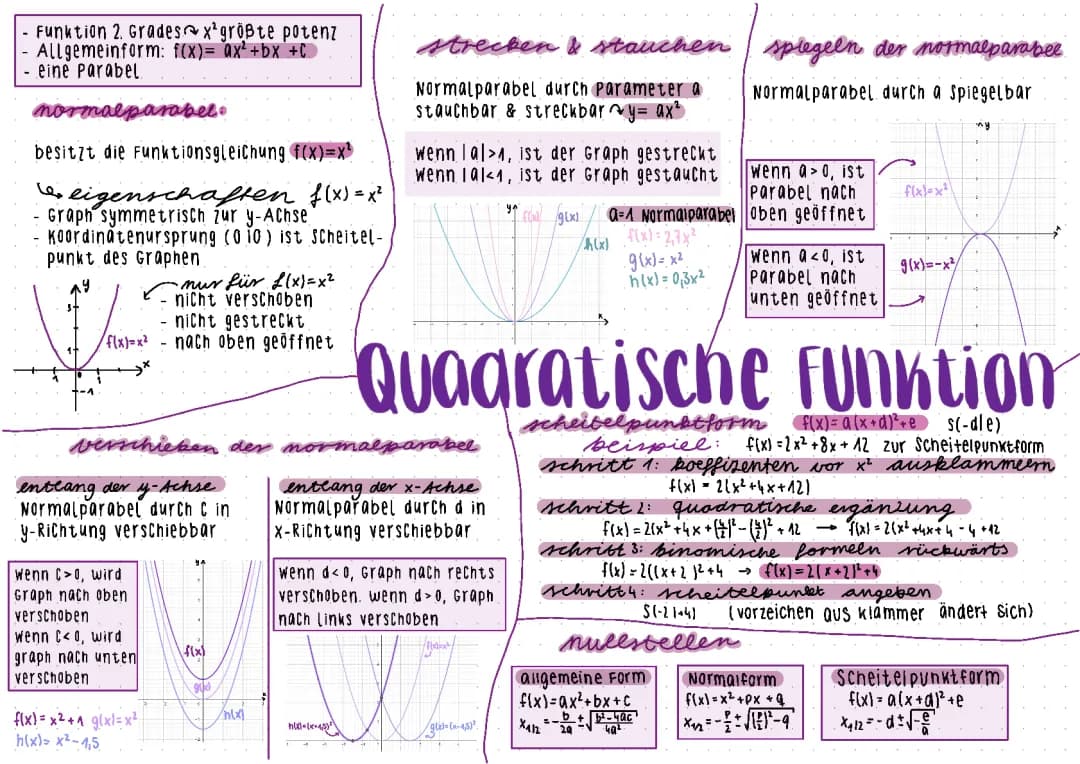 - Funktion 2. Grades↷ x² größte potenz
- Allgemeinform: f(x)= ax²+bx +c
- eine Parabel
normalparabel:
besitzt die Funktionsgleichung f(x)=x²
↳ eigenschaften f(x)=x²
- Graph symmetrisch zur y-Achse
- Koordinatenursprung (0|0) ist Scheitel-
punkt des Graphen
nur für f(x)=x²
- nicht verschoben
- nicht gestreckt
- nach oben geöffnet
y
f(x)=x²
x
strecken & stauchen
Normalparabel durch Parameter a
stauchbar & streckbar ↷ y= ax²
Wenn |a|>1, ist der Graph gestreckt
Wenn |a|<1, ist der Graph gestaucht
y
f(x)
g(x)
h(x)
x
a=1 Normalparabel
f(x)= 2,7x²
g(x)= x²
h(x)= 0,3x²
spiegeln der normalparabel
Normalparabel durch a Spiegelbar
Wenn a>0, ist
Parabel nach
oben geöffnet
Wenn a<0, ist
Parabel nach
unten geöffnet
y
f(x)=x²
x
g(x)=-x²
Quadratische Funktion
verschieben der normalparabel
entlang der y-Achse
Normalparabel durch C in
y-Richtung verschiebbar
Wenn C>0, wird
Graph nach oben
verschoben
Wenn C<0, wird
graph nach unten
verschoben
f(x)
g(x)
h(x)
f(x)= x²+1 g(x)=x²
h(x)= x²-1,5
entlang der x-Achse
Normalparabel durch d in
x-Richtung verschiebbar
Wenn d<0, Graph nach rechts
verschoben. Wenn d>0, Graph
nach links verschoben
f(x)=x²
h(x)=(x+1,5)²
g(x)=(x-1,5)²
scheitelpunktform f(x)= a(x+d)²+e S(-d|e)
beispiel: f(x)=2x²+8x+12 zur Scheitelpunktform
schritt 1: koeffizenten vor x² ausklammern
f(x) = 2(x²+4x+12)
schritt 2: quadratische ergänzung
f(x)=2(x²+4x+(4/2)²-(4/2)²+12 → f(x)=2(x²+4x+4-4+12
schritt 3: binomische formeln rückwärts
f(x)=2((x+2)²+4 → f(x)=2(x+2)²+4
schritt 4: scheitelpunkt angeben
S(-2|+4) (vorzeichen aus Klammer ändert sich)
nullstellen
allgemeine Form
f(x)=ax²+bx+c
x1/2=-b/2a±√(b²-4ac/4a²)
Normalform
f(x)=x²+px+q
x1/2=-p/2±√((p/2)²-q)
Scheitelpunktform
f(x)=a(x+d)²+e
x1/2=-d±√(-e/a)